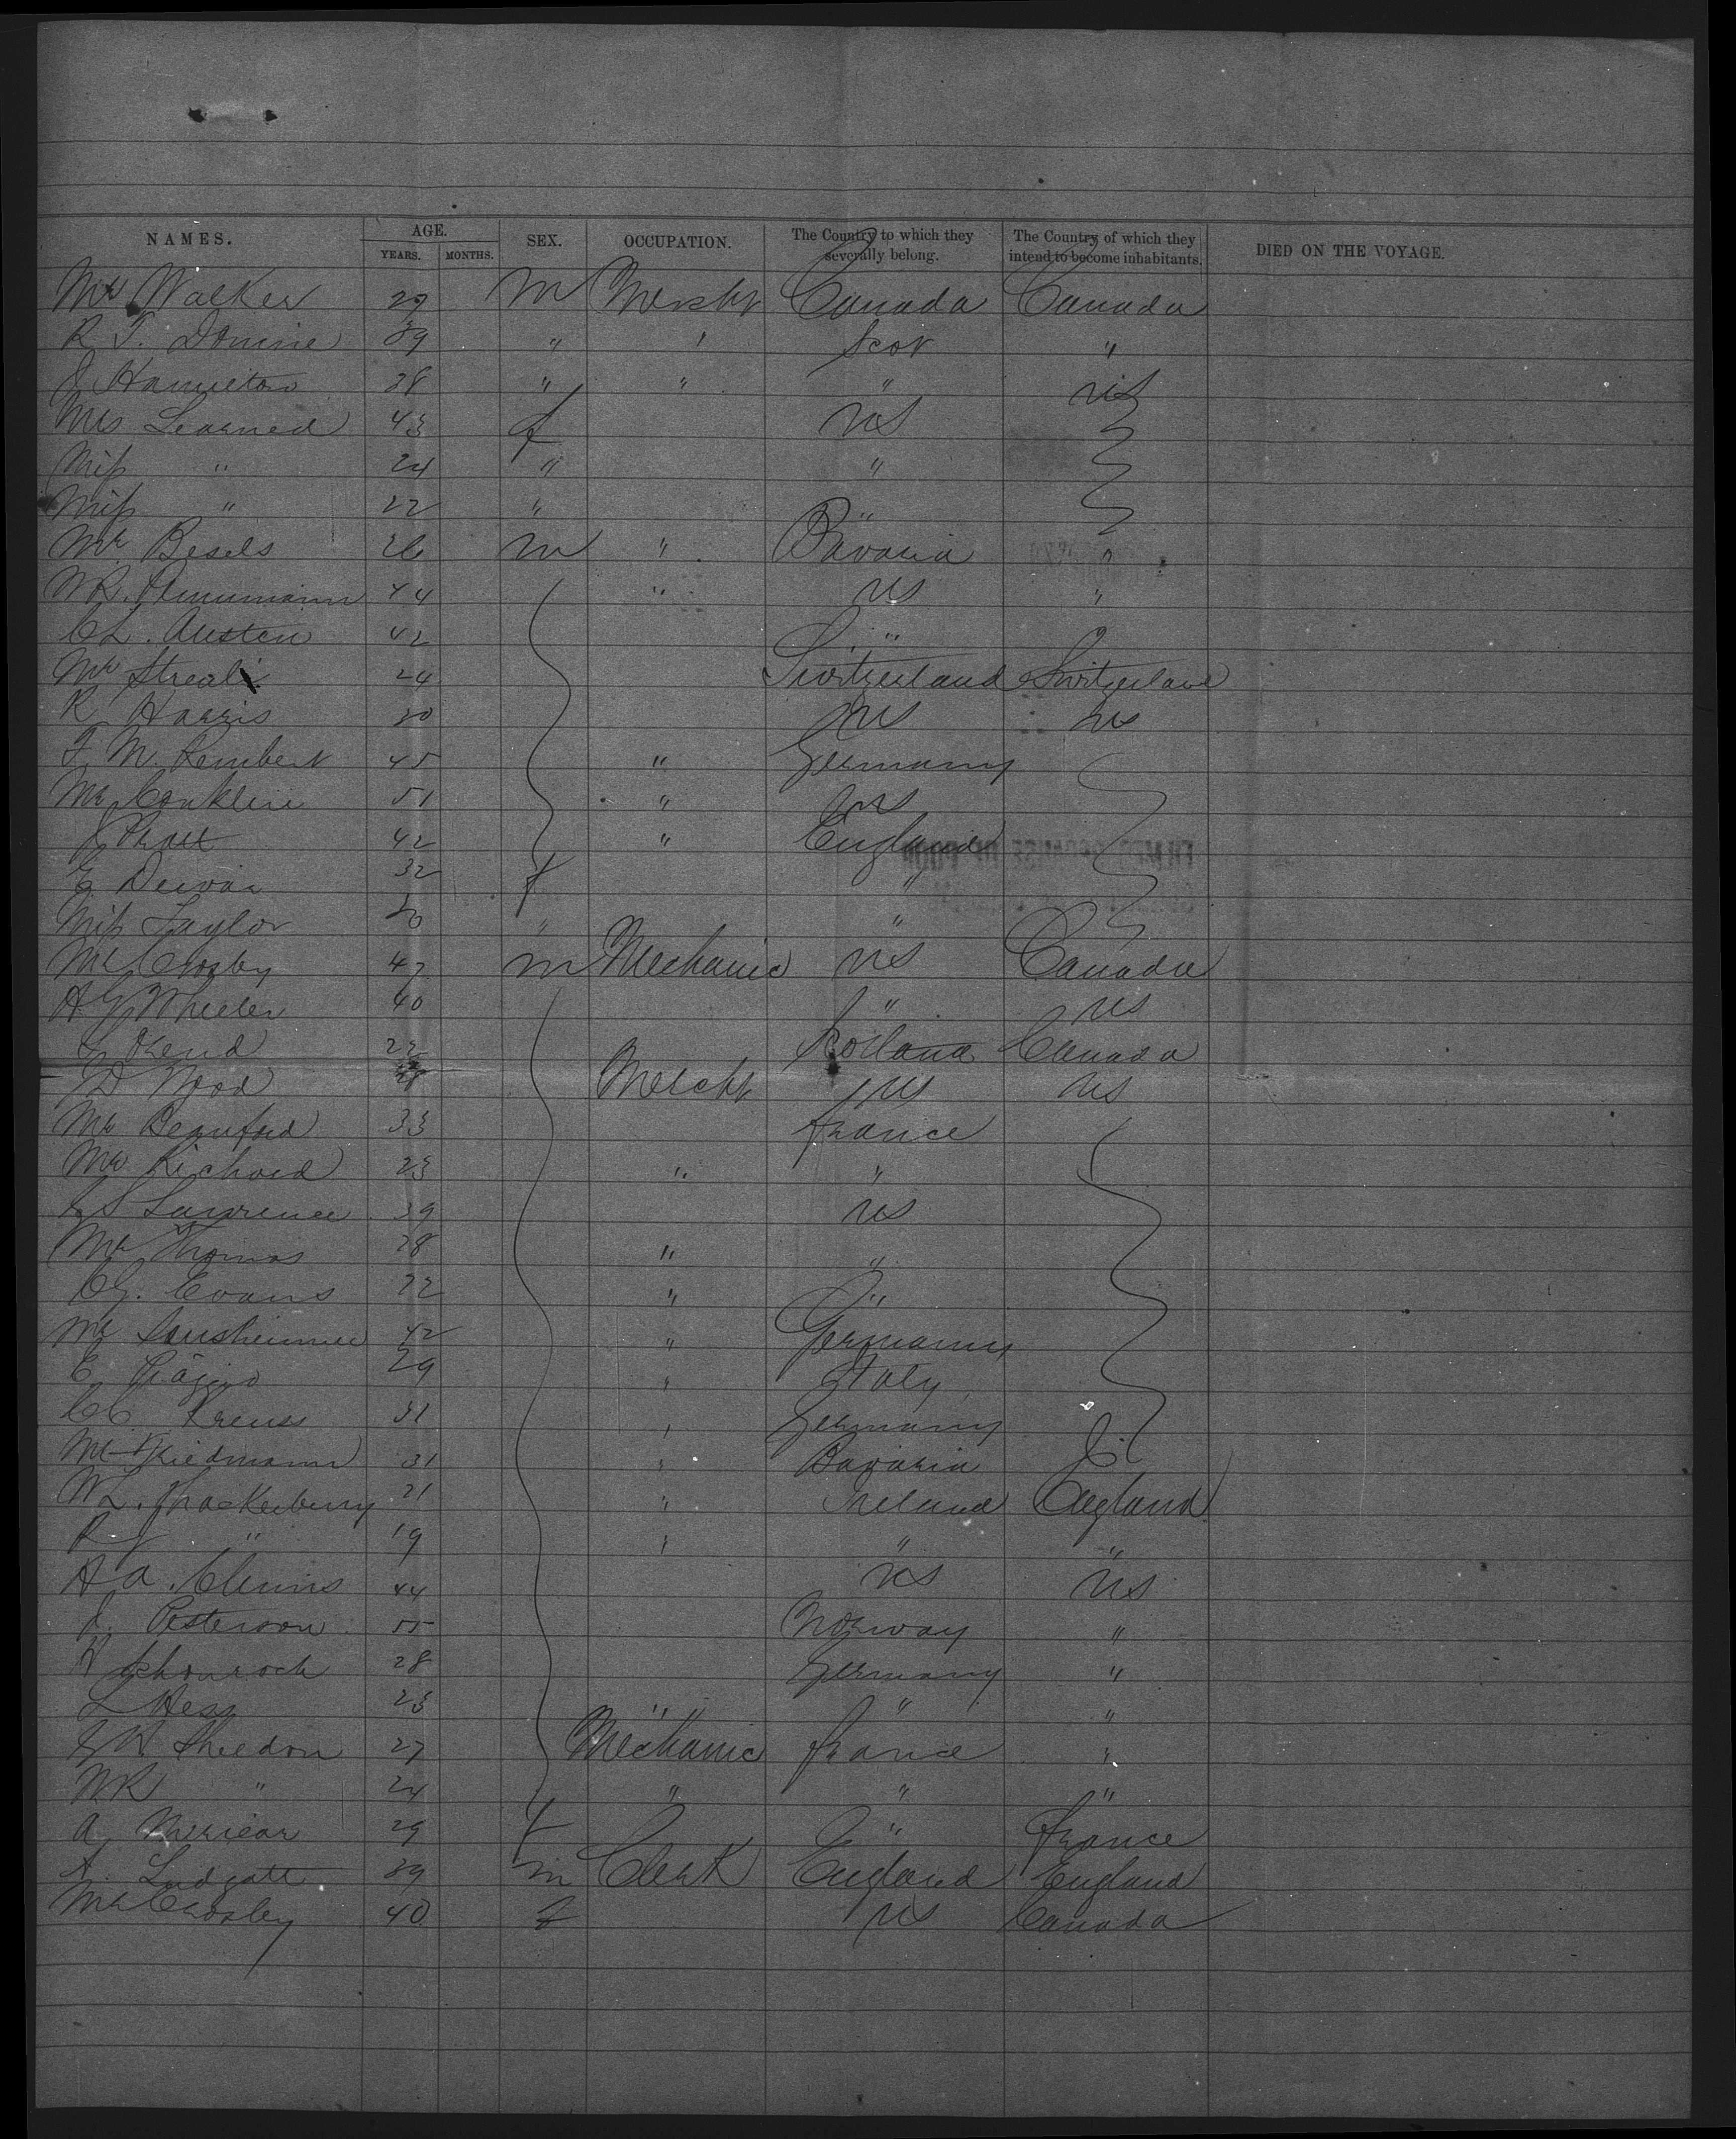 NAMES. AGE. YEARS. MONTHS. SEX. OCCUPATION. The Country to which they severally belong. The Country of which they intend to become inhabitants. DIED ON THE VOYAGE.
Mr Walker 29 m Mercht Canada Canada
R T. Downie 39 " " Scot "
J Hamilton 38 " " " US
Mrs Learned 43 f US
Miss " 24 " "
Miss " 22 " "
Mr Besels 26 m " Bavaria "
W R. 44 " US "
C L. Austen 42 "
Mr 24 Switzerland Switzerland
R Harris 30 US US
F. M. Rembert 45 " Germany
Mr Conklin 51 " US
J Pratt 42 " England
E 32 f "
Miss Taylor 20 " "
Mr Crosby 47 m Mechanic US Canada
A G Wheeler 40 " US
22 Scotland Canada
D Wood 28 Mercht US US
Mr 33 France
Mr Richard 23 " "
S Lawrence 39 US
Mr Thomas 28 " "
C G. Evans 22 " "
Mr 42 " Germany
E Piaggio 29 " Italy
C C Kreuss 31 " Germany
Mr Friedmann 31 " Bavaria
W L. Thackerberry 21 " Ireland England
R J " 19 " " "
A A. 44 US US
J. Petterson 55 Norway "
28 Germany "
L Hess 23 " " "
W Sheedon 27 Mechanic France "
W R " 24 " " "
A 29 f " France
A. Ludgatt 39 m Clerk England England
Mrs Crosby 40 f US Canada